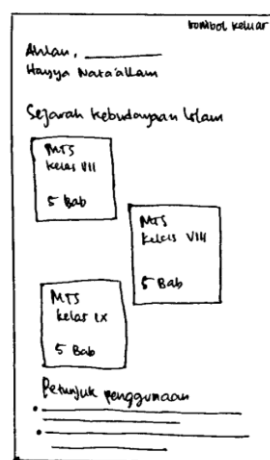 tombol keluar
Ahlan, ________
Hayya Nata'allam
Sejarah kebudayaan Islam
MTS
kelas VII
5 Bab
MTS
kelas VIII
5 Bab
MTS
kelas IX
5 Bab
Petunjuk penggunaan